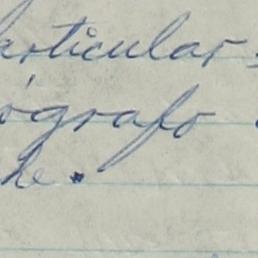 articular
ógrafo
he.